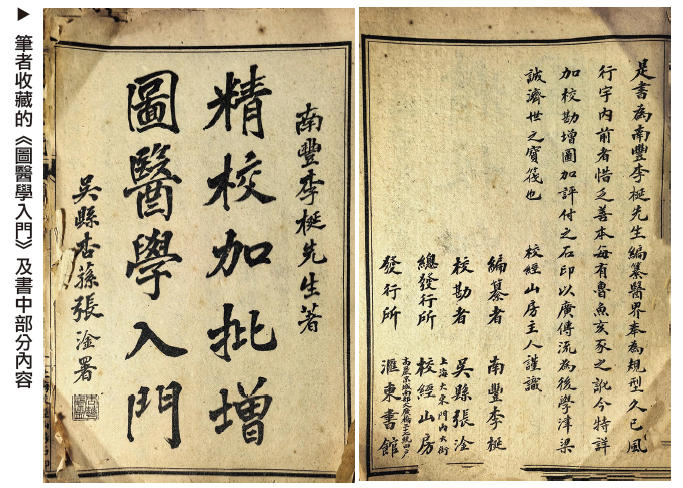 ▶ 筆者收藏的《圖醫學入門》及書中部分內容
南豐李梴先生著
精校加批增
圖醫學入門
吳縣杏蓀張淦署
是書為南豐李梴先生編纂醫界奉為規型久已風
行宇內前者惜乏善本每有魯魚亥豕之訛今特詳
加校勘增圖加評付之石印以廣傳流為後學津梁
誠濟世之寶筏也 校經山房主人謹識
編纂者 南豐李梴
校勘者 吳縣張淦
總發行所 上海大東門內大街 校經山房
發行所 高麗京城南部 滙東書館